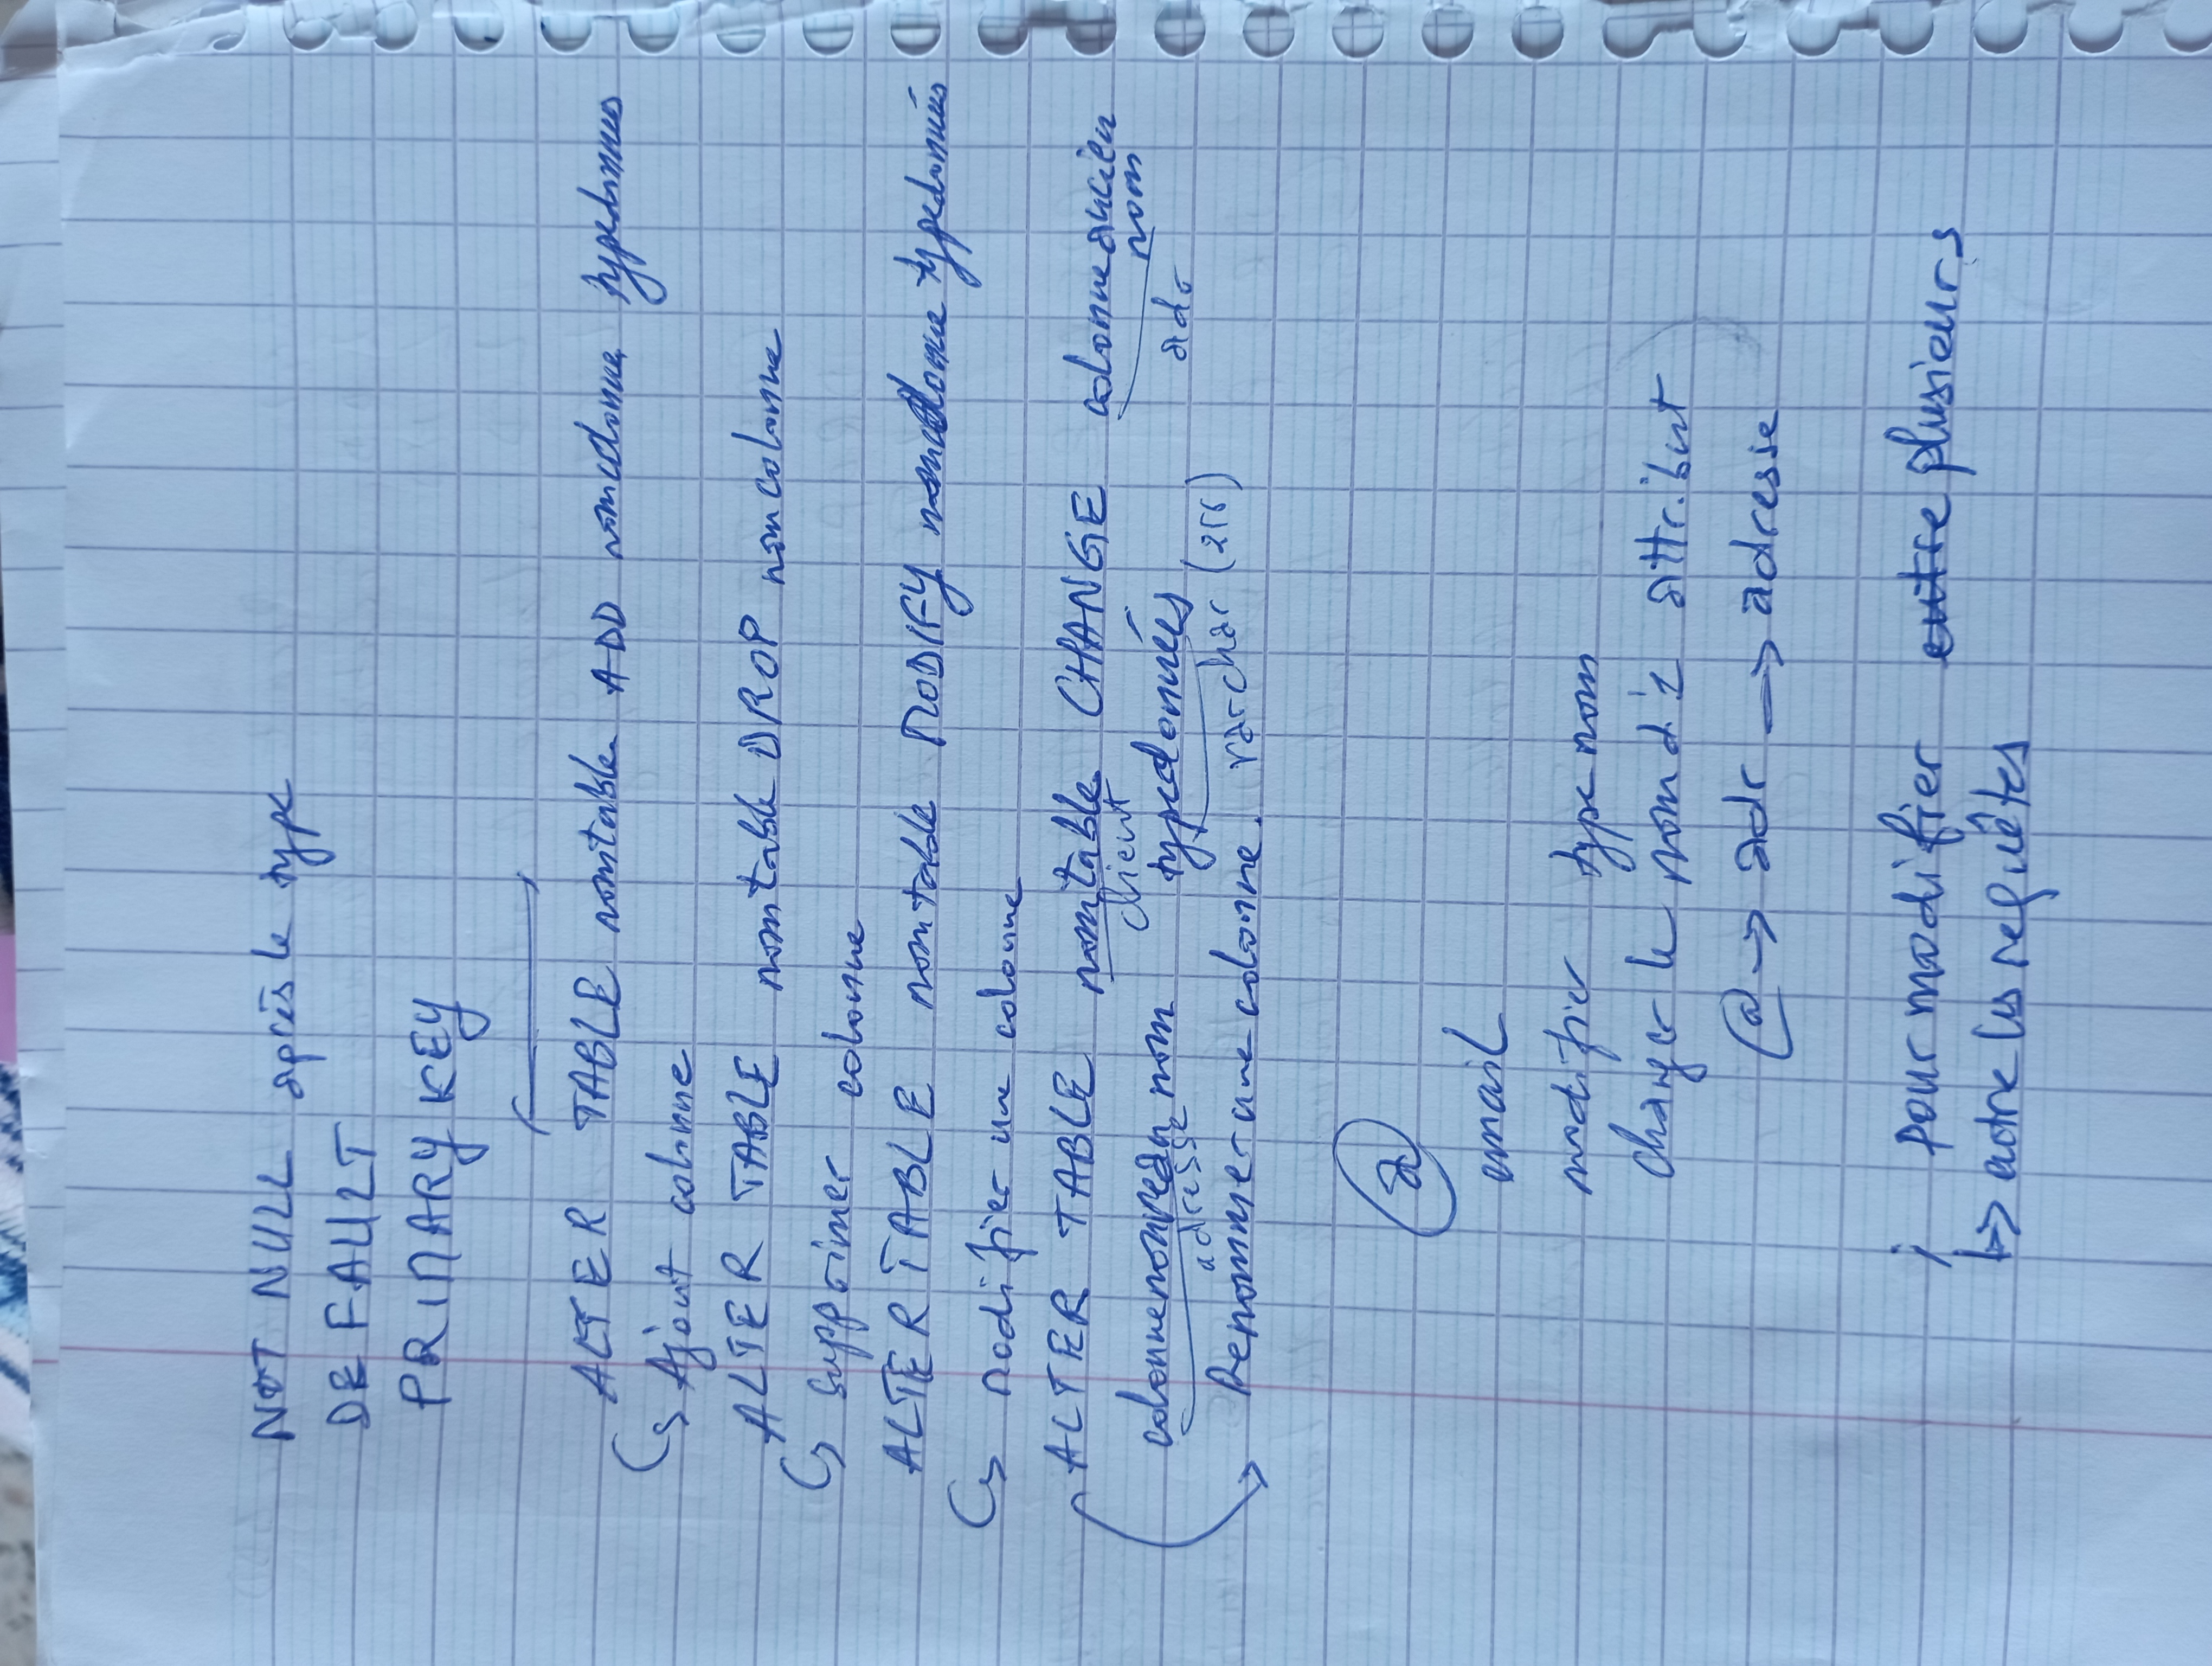 NOT NULL après le type
DEFAULT
PRIMARY KEY
ALTER TABLE nomtable ADD nomcolonne typedonnées
↳ Ajout colonne
ALTER TABLE nomtable DROP nomcolonne
↳ supprimer colonne
ALTER TABLE nomtable MODIFY nomcolonne typedonnées
↳ modifier une colonne
ALTER TABLE nomtable CHANGE colonneancien nom
client
colonnenouveau nom typedonnées
adresse varchar (256) adr
Renommer une colonne.
a
email
modifier type nom
changer le nom d'1 attribut
@ → adr → adresse
; pour modifier entre plusieurs
↳ entre les requêtes